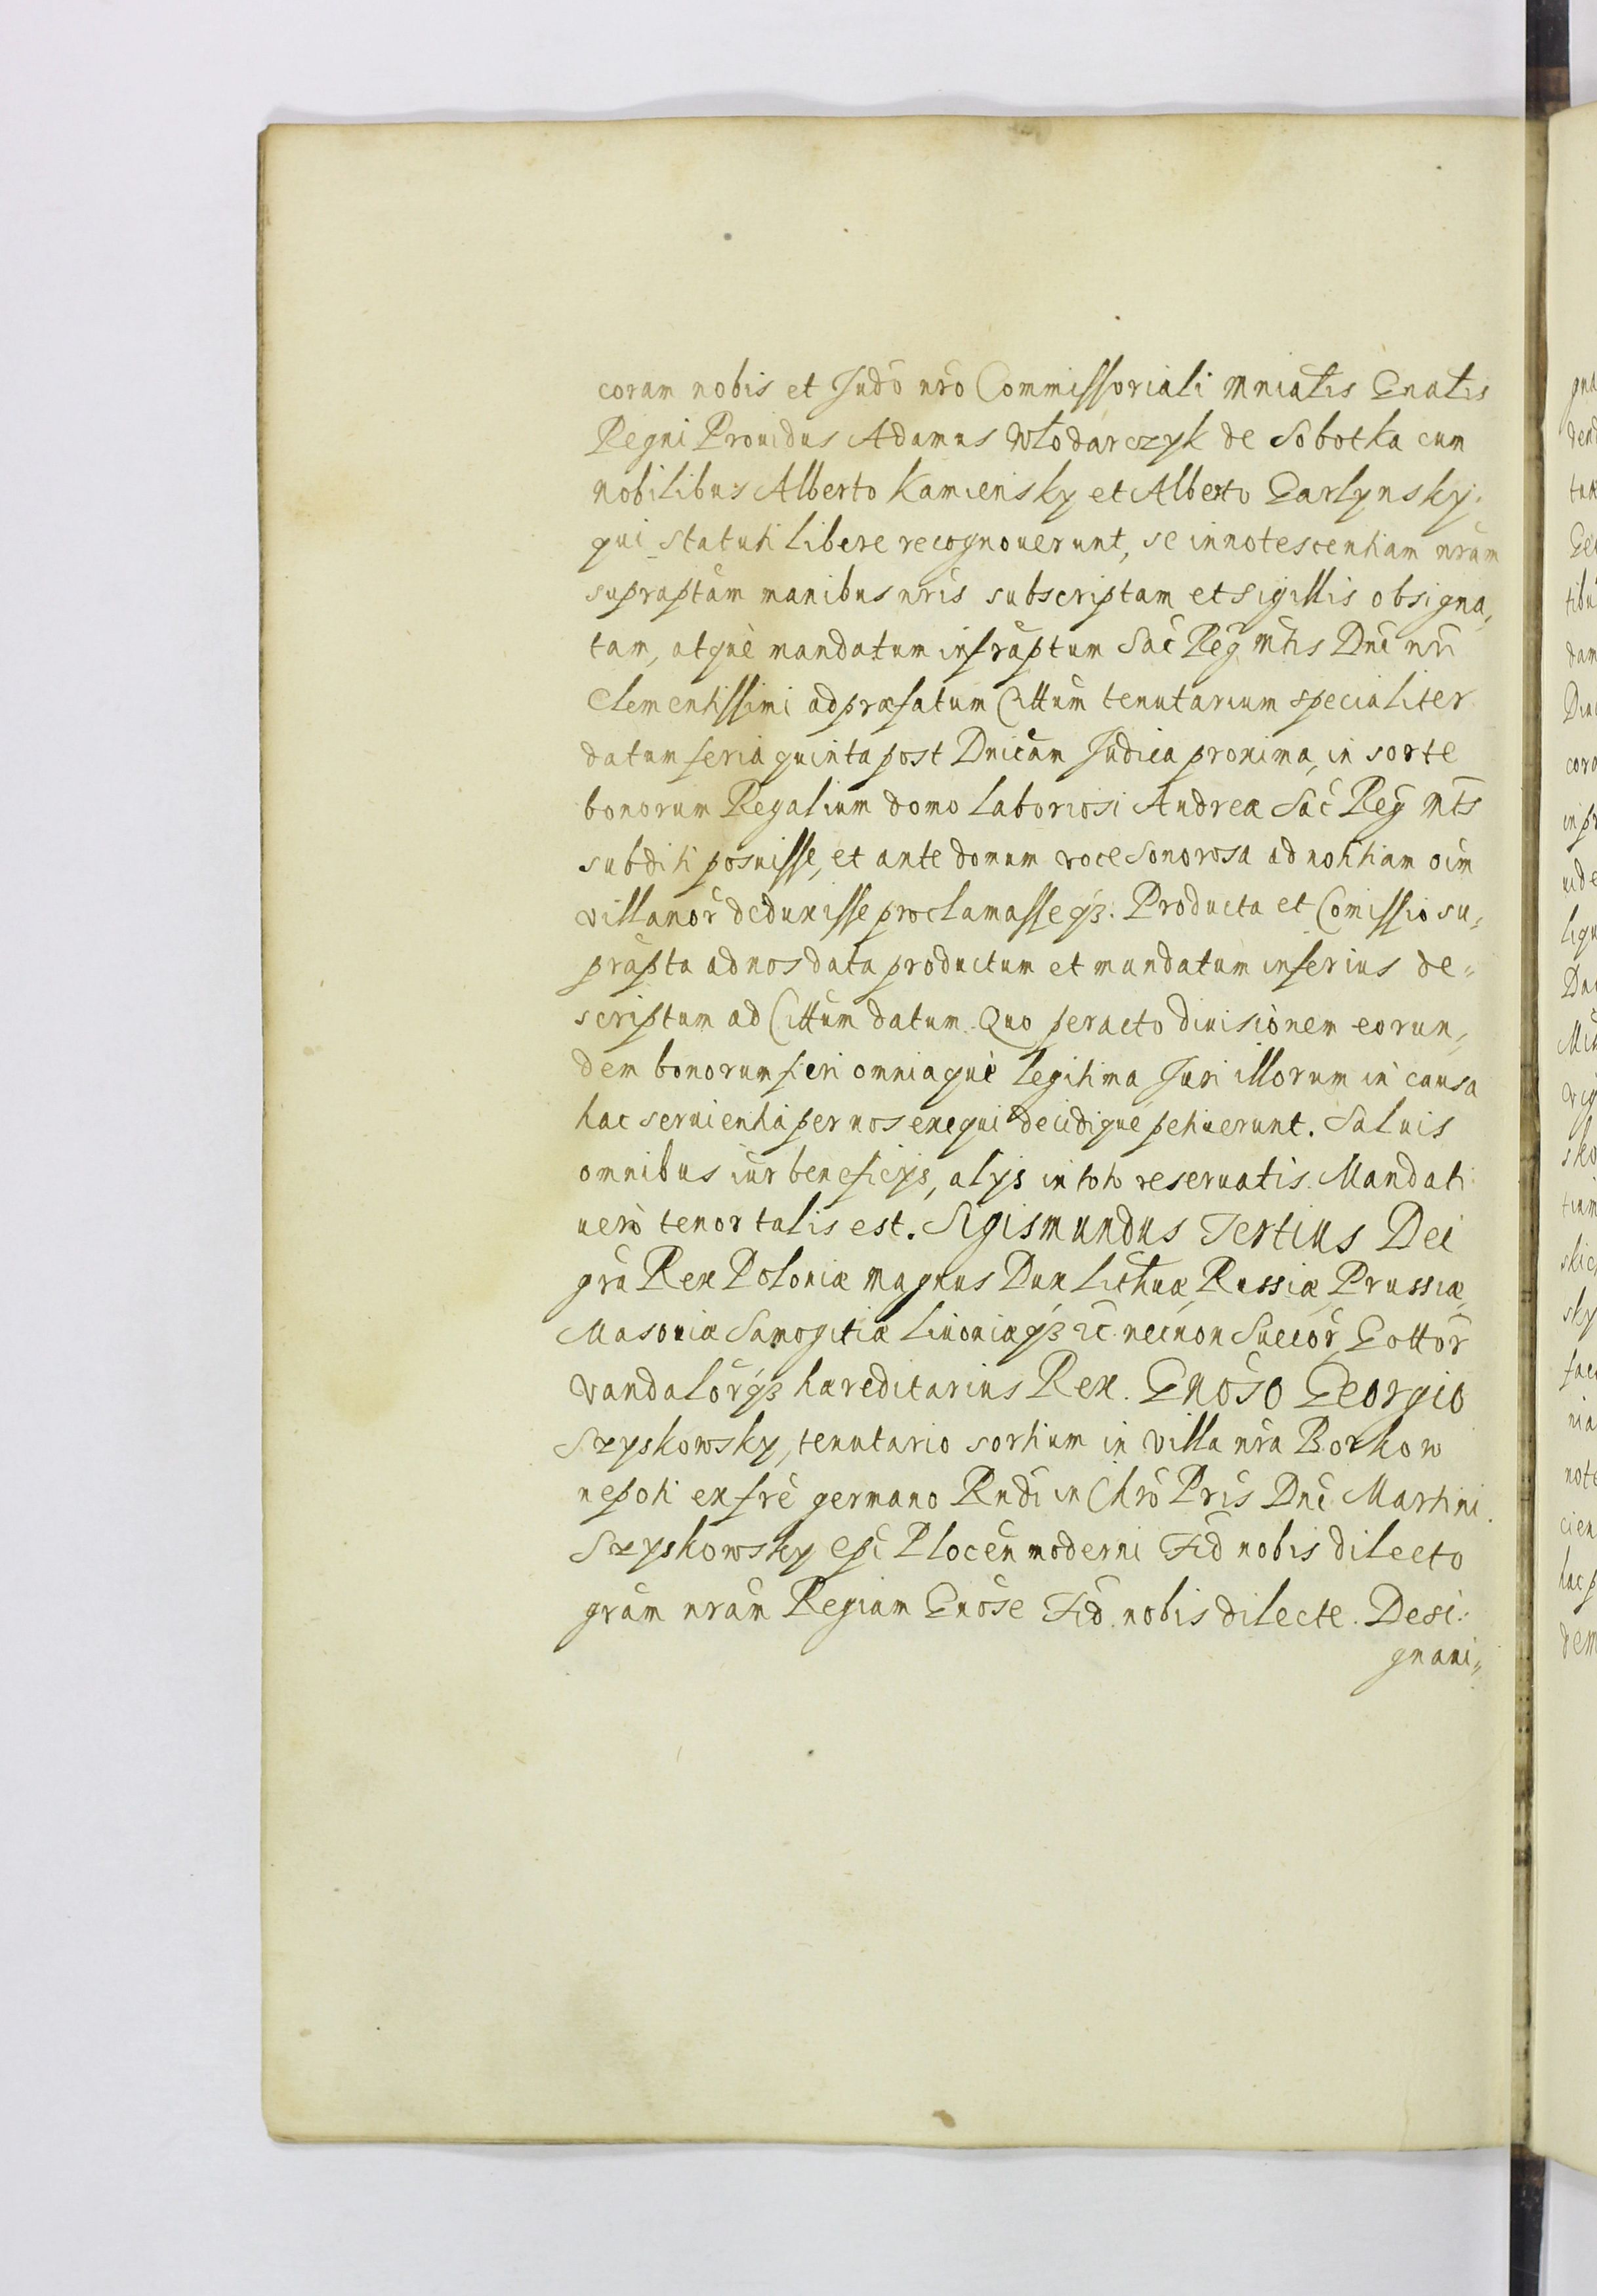 coram nobis et Judō nrō Commissoriali Mniatis Gnatis
Regni Prouidus Adamus Włodarczyk de Sobotka cum
nobilibus Alberto Kamiensky et Alberto Garlynsky.
qui statuti libere recognouerunt, se innotescentiam nrām
suprāptām manibus nrīs subscriptam et sigillis obsigna,
tam, atquè mandatum infrāptum Sac̄ Reḡ Mtīs Dnī nrī
Clementissimi ad præfatum Cittūm tenutarium specialiter
datum feria quinta post Dnicām Judica proxima, in sorte
bonorum Regalium domo laboriosi Andreæ Sac̄ Reḡ Mtīs
subditi posuisse, et ante domum voce sonorosa ad notitiam oīm
villanor̄ deduxisse proclamasseqȝ. Producta et Comīssio su,
prāpta ad nos data productum et mandatum inferius de=
scriptum ad Cittūm datum. Quo peracto diuisionem eorun,,
dem bonorum fieri omniaquè legitima Juri illorum in causa
hac seruientia per nos exequi decidique petiuerunt. Saluis
omnibus iur̄ beneficijs, alijs in toto reseruatis. Mandati
uerò tenor talis est. Sigismundus Tertius Dei
grā Rex Poloniæ magnus Dux Lithuæ, Russiæ, Prussiæ,
Masouiæ Samogitiæ Liuoniæqȝ ꝛc̄ necnon Suecor̄, Gottor̄
Vandalor̄qȝ hæreditarius Rex. Gnōso Georgio
Szyskowsky, tenutario sortium in villa nrā Borkow
nepoti ex frē germano Rndī in Chrō Prīs Dnī Martini
Szyskowsky Epī Plocēn moderni Fid̄ nobis dilecto
grām nrām Regiam Gnōse Fid̄ nobis dilecte. Desi:
gnaui,,